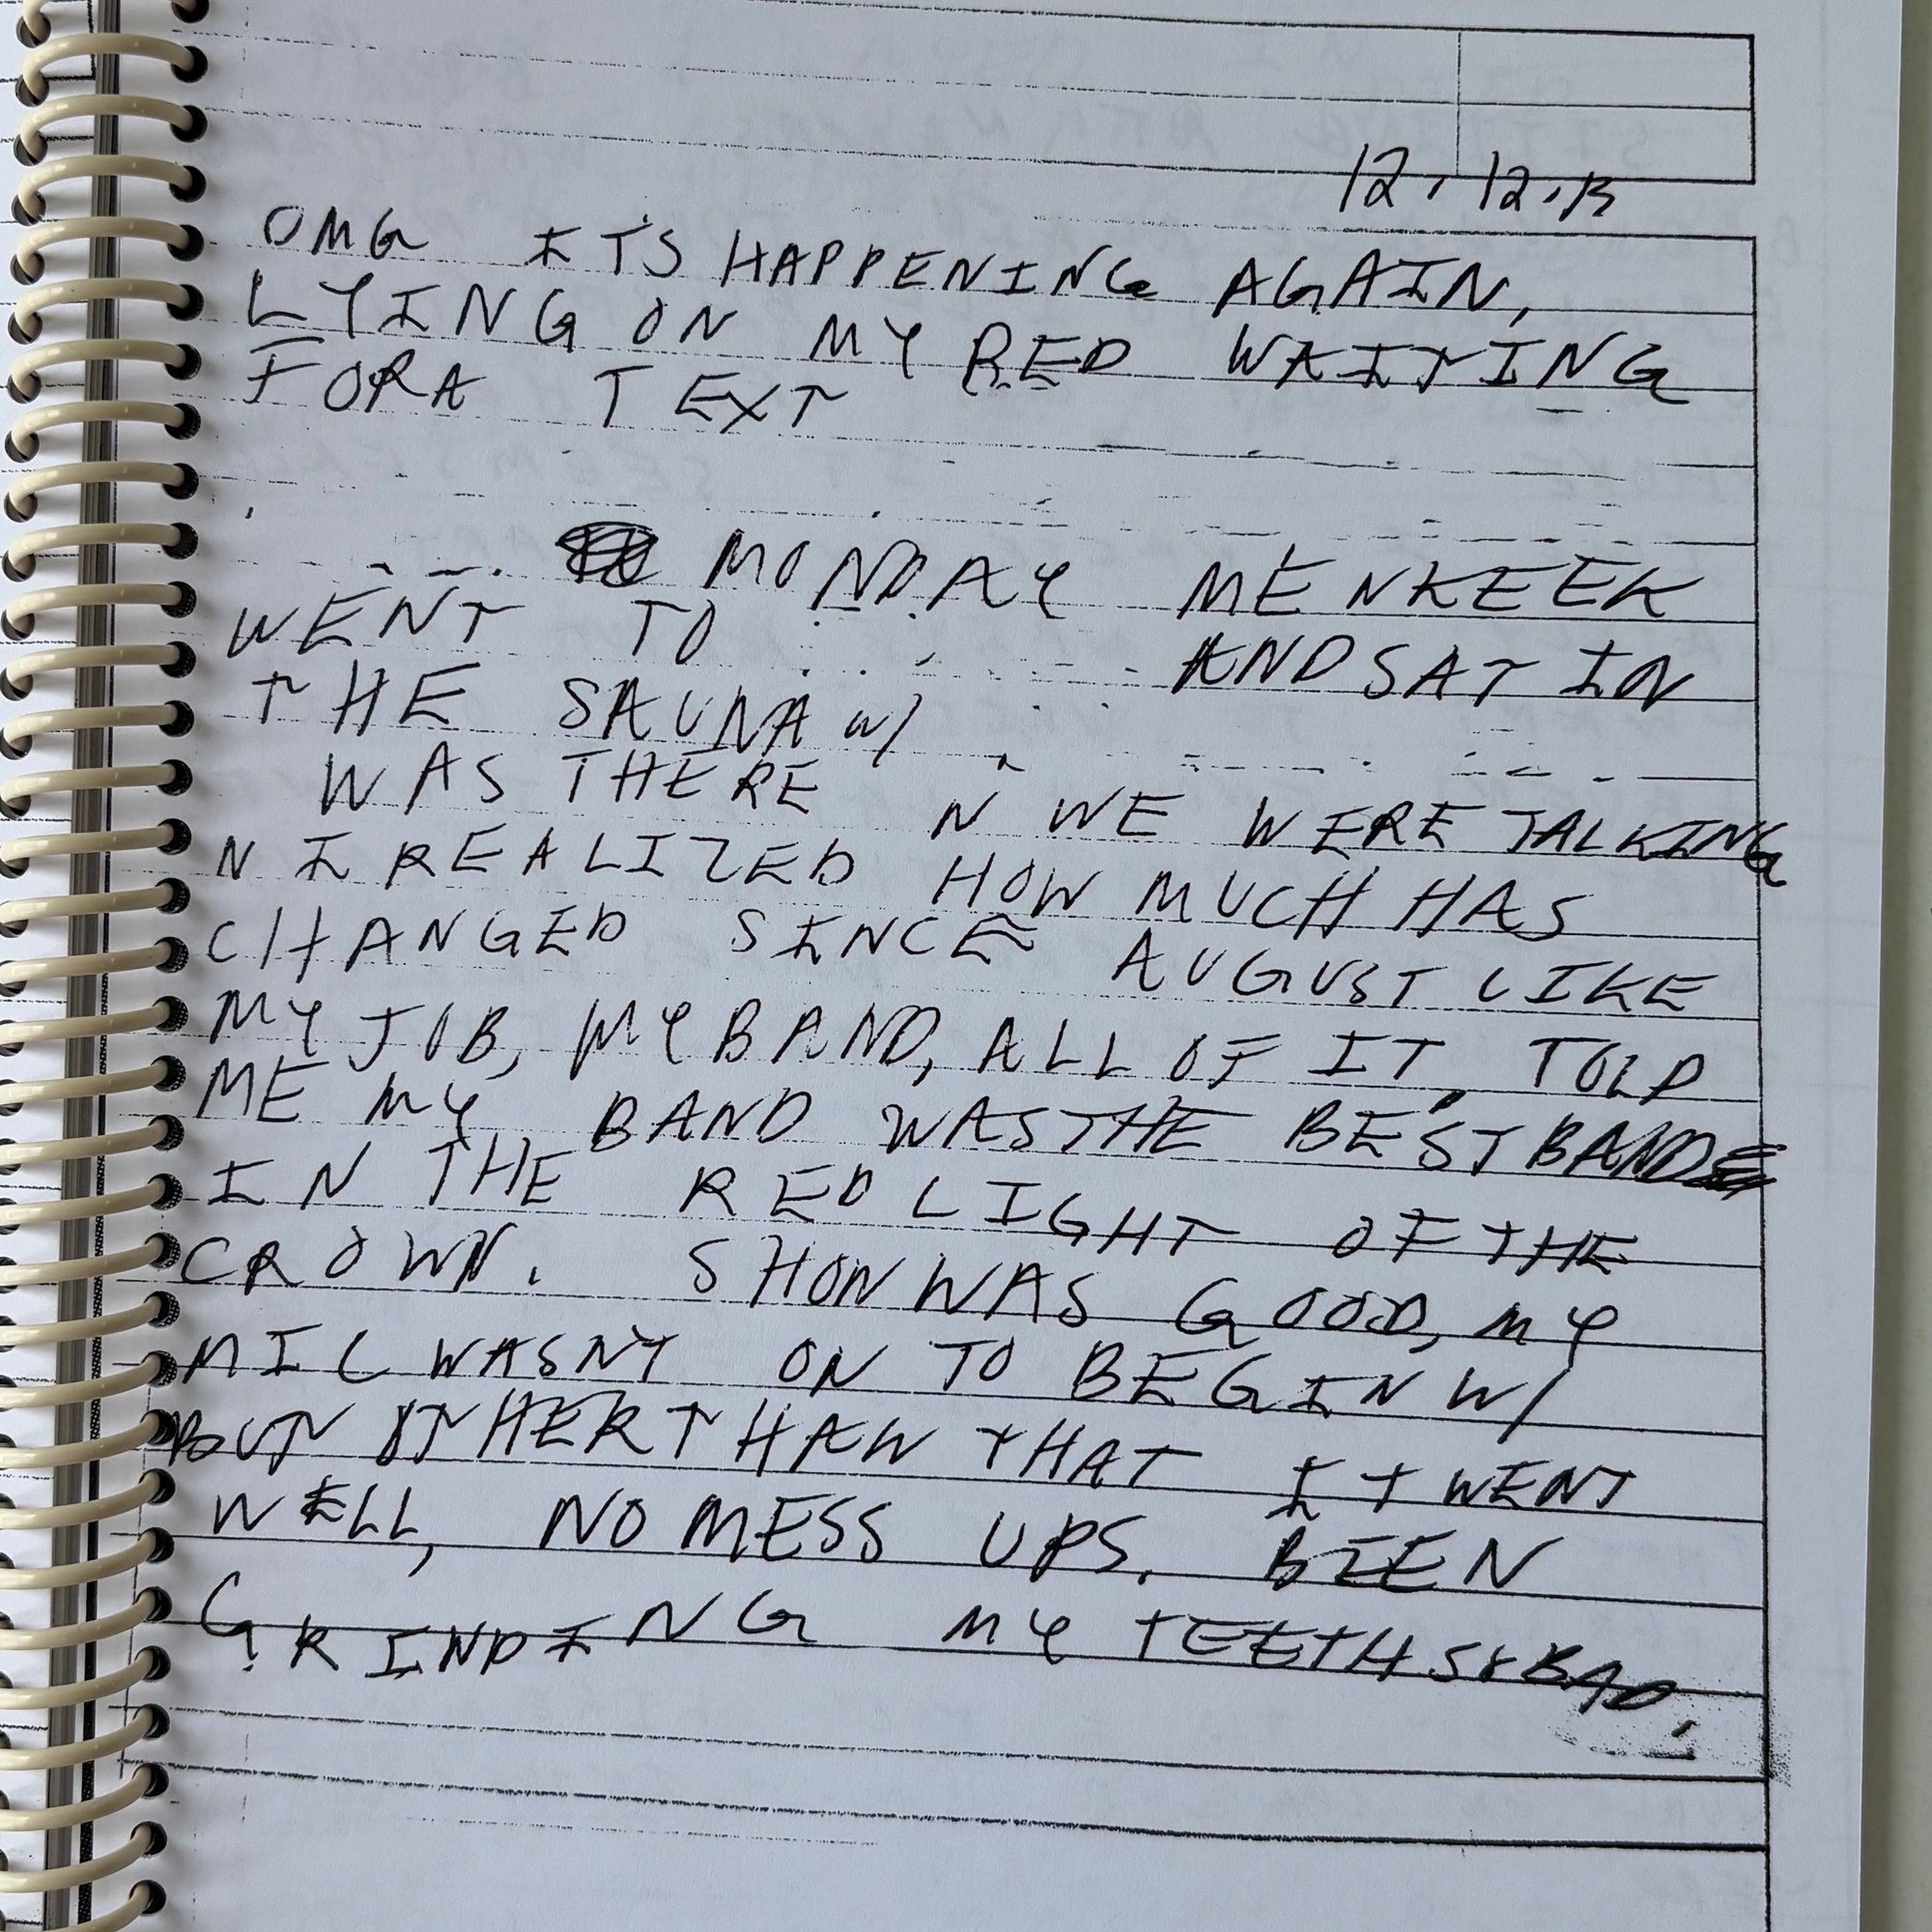 12.12.13
OMG ITS HAPPENING AGAIN,
LYING ON MY BED WAITING
FOR A TEXT
MONDAY ME N KEEK
WENT TO AND SAT IN
THE SAUNA W/
WAS THERE N WE WERE TALKING
N I REALIZED HOW MUCH HAS
CHANGED SINCE AUGUST LIKE
MY JOB, MY BAND, ALL OF IT, TOLD
ME MY BAND WAS THE BEST BAND
IN THE RED LIGHT OF THE
CROWN. SHOW WAS GOOD, MY
MIC WASN'T ON TO BEGIN W/
BUT OTHER THAN THAT IT WENT
WELL, NO MESS UPS. BEEN
GRINDING MY TEETH SO BAD.